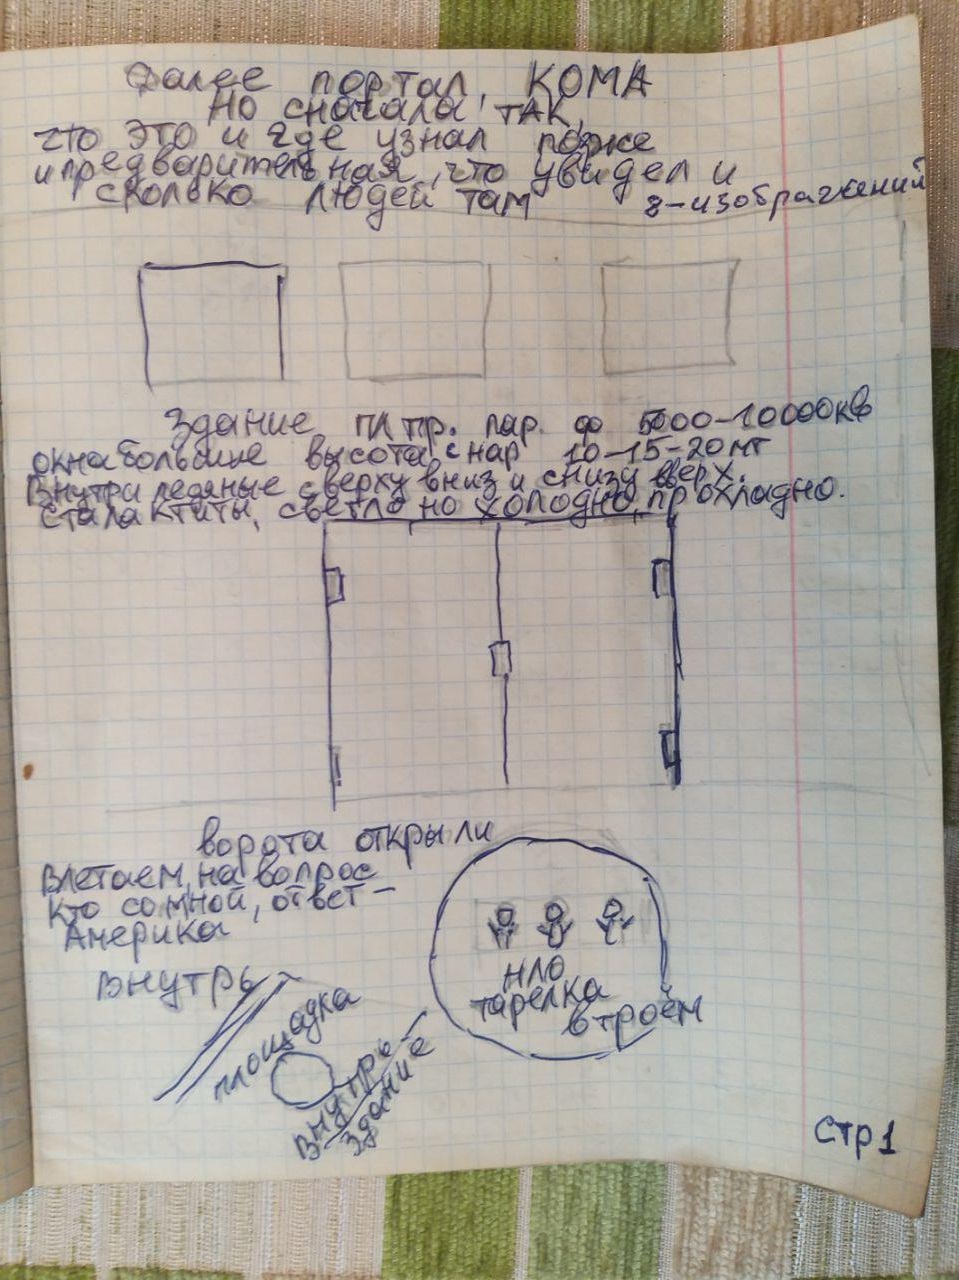 Далее портал, КОМА
Но сначала, ТАК,
что это и где узнал позже
и предварительная, что увидел и
сколько людей там 8-изображений
Здание пл пр. пар. ф 5000-10000кв
окна большие высота с нар 10-15-20 мт
Внутри ледяные сверху вниз и снизу вверх.
сталактиты, светло но холодно, прохладно.
ворота открыли
Влетаем, на вопрос
кто со мной, ответ-
Америка
Внутрь
площадка
Внутрь
здание
НЛО
тарелка
втроём
Стр 1